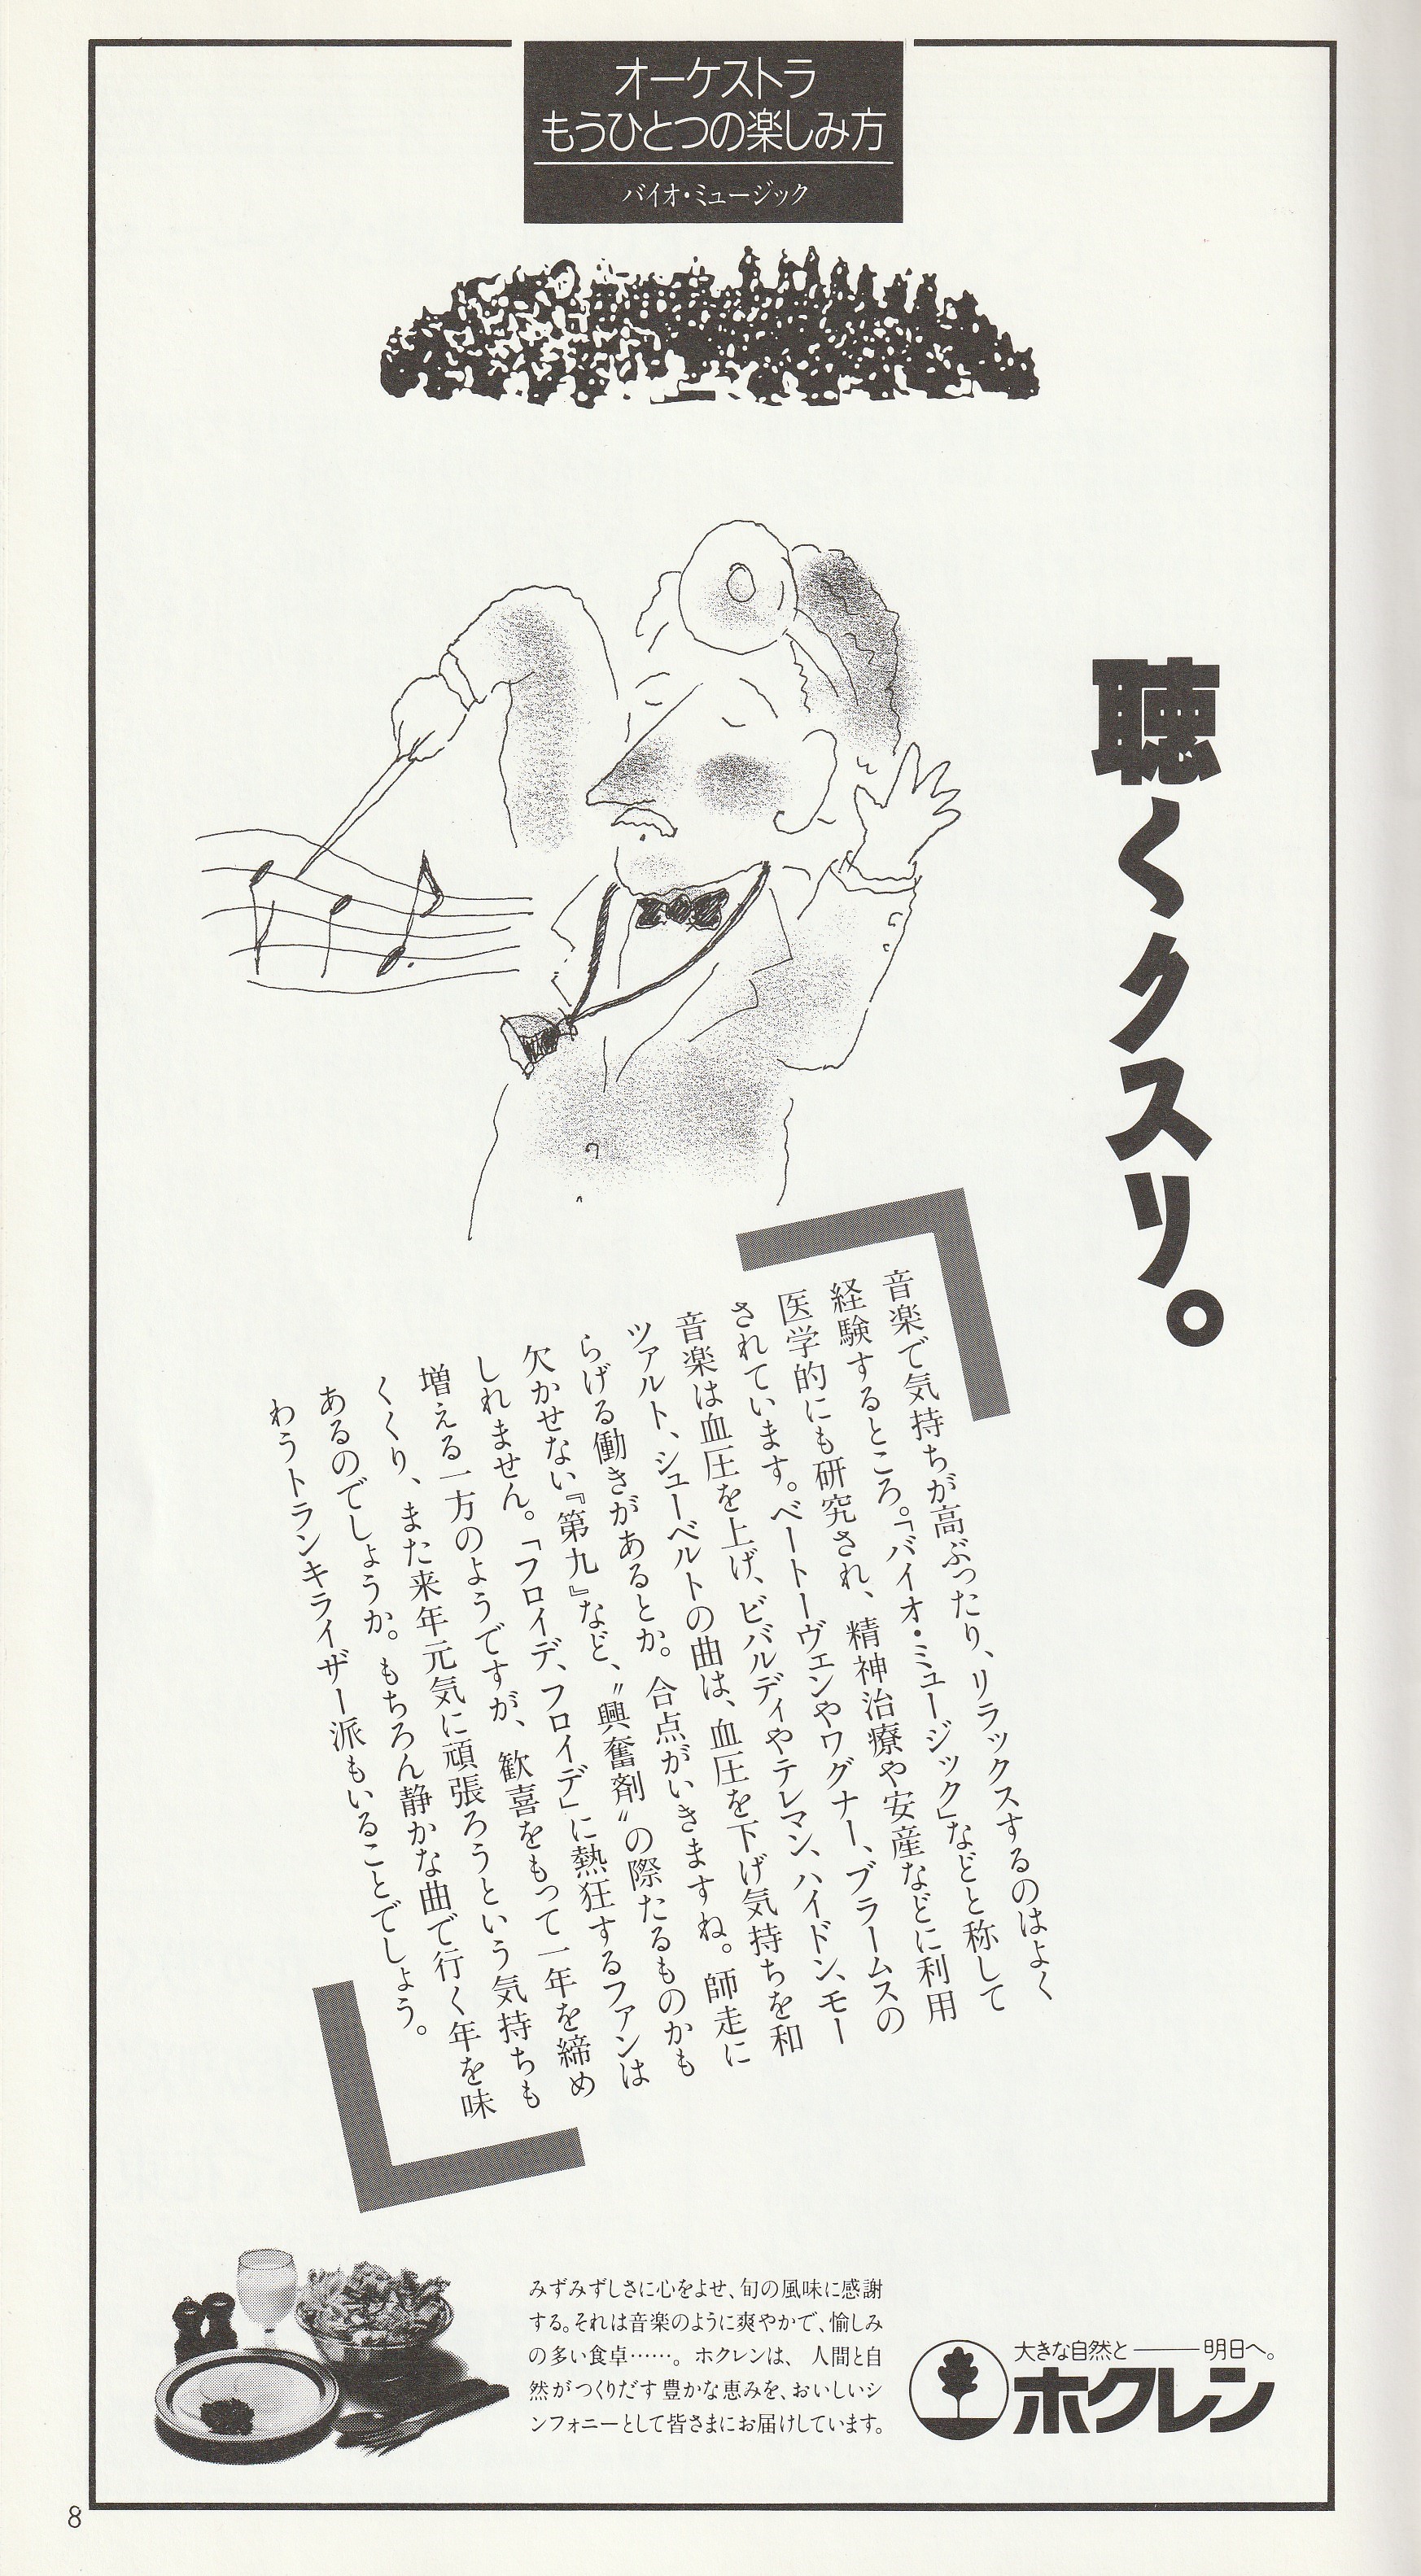 オーケストラ
もうひとつの楽しみ方
バイオ・ミュージック
聴くクスリ。
音楽で気持ちが高ぶったり、リラックスするのはよく
経験するところ。「バイオ・ミュージック」などと称して
医学的にも研究され、精神治療や安産などに利用
されています。ベートーヴェンやワグナー、ブラームスの
音楽は血圧を上げ、ビバルディやテレマン、ハイドン、モー
ツァルト、シューベルトの曲は、血圧を下げ気持ちを和
らげる働きがあるとか。合点がいきますね。師走に
欠かせない『第九』など、〝興奮剤〟の際たるものかも
しれません。「フロイデ、フロイデ」に熱狂するファンは
増える一方のようですが、歓喜をもって一年を締め
くくり、また来年元気に頑張ろうという気持ちも
あるのでしょうか。もちろん静かな曲で行く年を味
わうトランキライザー派もいることでしょう。
みずみずしさに心をよせ、旬の風味に感謝
する。それは音楽のように爽やかで、愉しみ
の多い食卓……。ホクレンは、人間と自
然がつくりだす豊かな恵みを、おいしいシ
ンフォニーとして皆さまにお届けしています。
大きな自然と――明日へ。
ホクレン
8